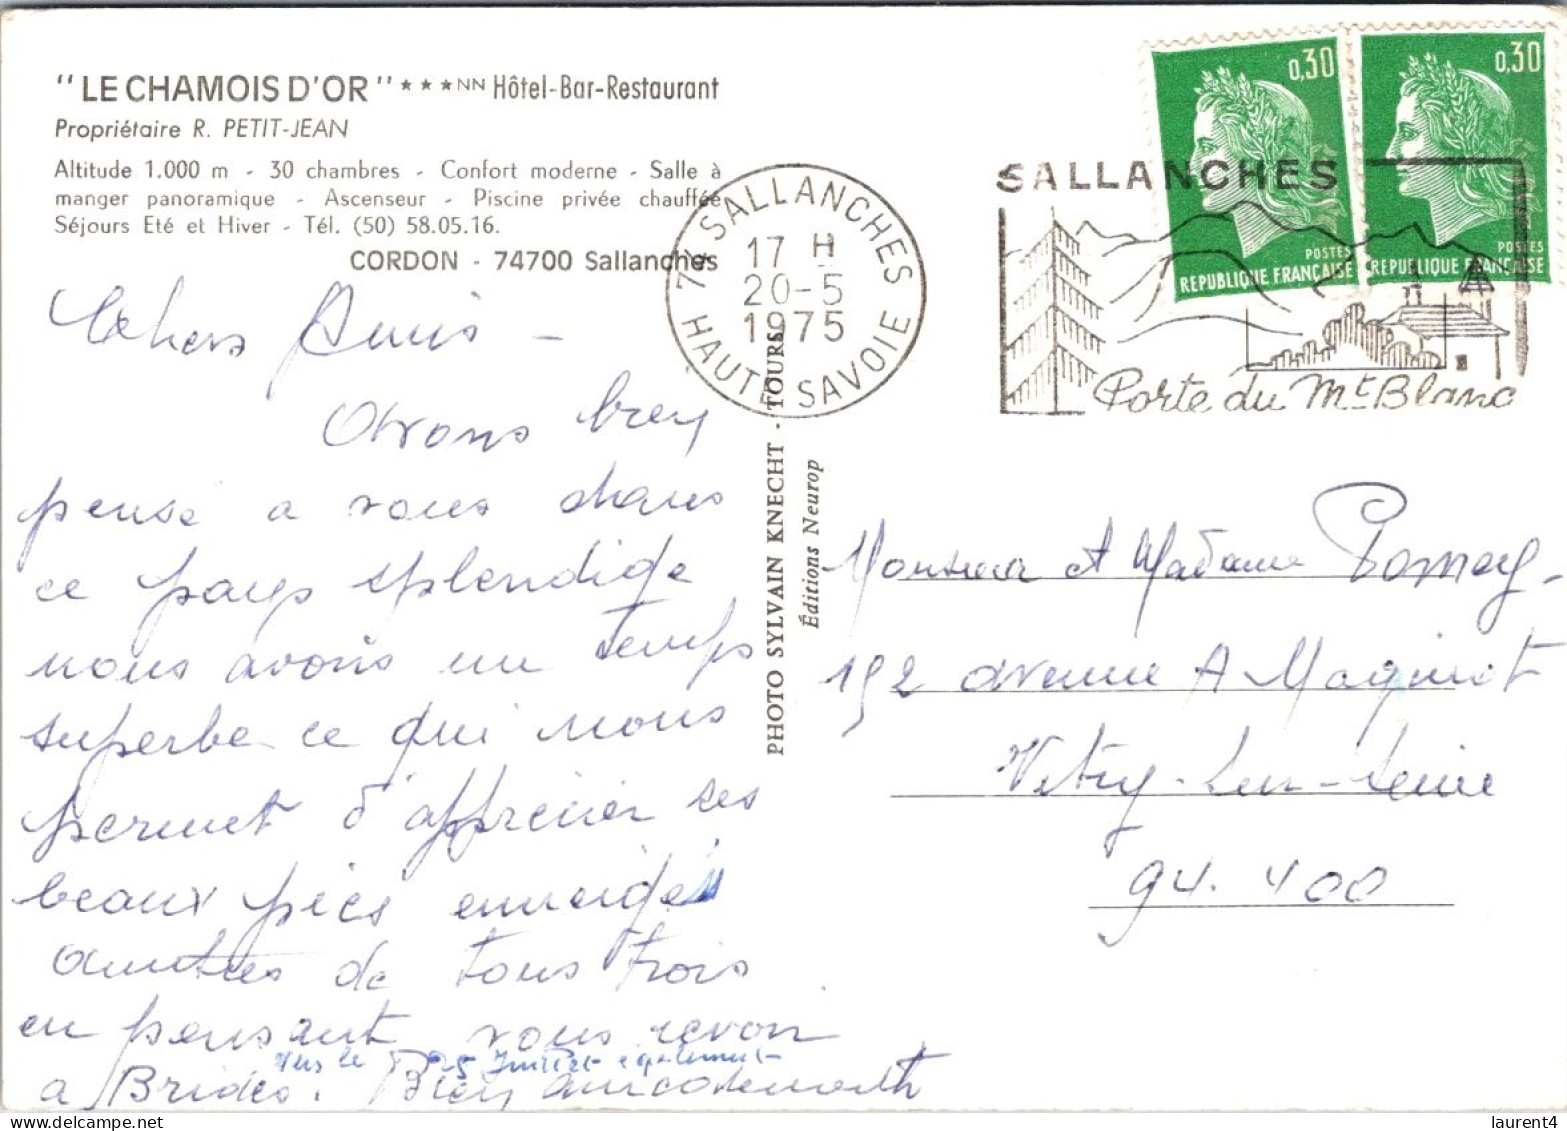 "LE CHAMOIS D'OR" ★★★NN Hôtel-Bar-Restaurant
Propriétaire R. PETIT-JEAN
Altitude 1.000 m - 30 chambres - Confort moderne - Salle à
manger panoramique - Ascenseur - Piscine privée chauffée
Séjours Eté et Hiver - Tél. (50) 58.05.16.
CORDON - 74700 Sallanches
Chers Amis -
Avons bien
pensé a vous dans
ce pays splendide
nous avons un temps
superbe ce qui nous
permet d'apprécier ses
beaux pics enneigés
amitiés de tous trois
en pensant vous revoir
vers le 25 Juillet également
a Brides. Bien amicalement
PHOTO SYLVAIN KNECHT - TOURS
Éditions Neurop
74 SALLANCHES
17 H
20-5
1975
HAUTE SAVOIE
SALLANCHES
Porte du Mt Blanc
0,30
POSTES
REPUBLIQUE FRANÇAISE
0,30
POSTES
REPUBLIQUE FRANÇAISE
Monsieur et Madame
192 avenue A Maginot
Vitry-sur-Seine
94.400
laurent4